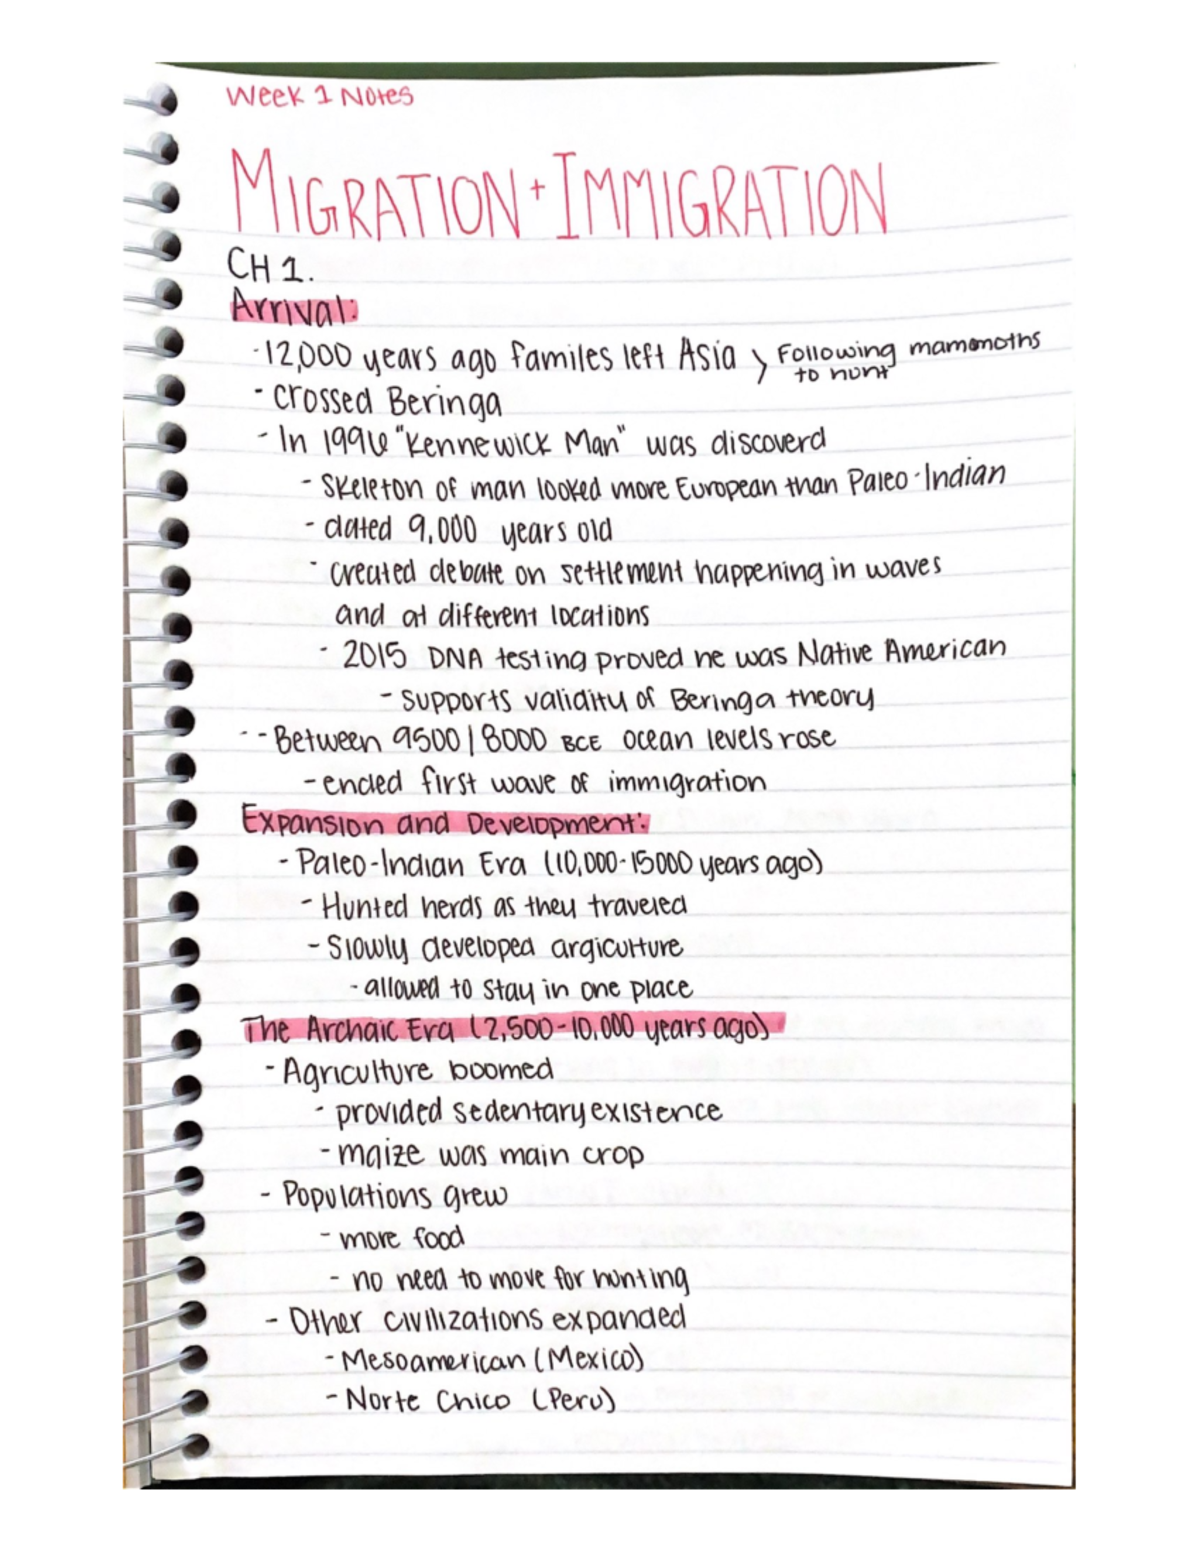 Week 1 Notes
MIGRATION + IMMIGRATION
CH 1.
Arrival:
-12,000 years ago familes left Asia > Following mamomoths
to hunt
- crossed Beringa
- In 1996 "Kennewick Man" was discoverd
- Skeleton of man looked more European than Paleo-Indian
- dated 9,000 years old
- created debate on settlement happening in waves
and at different locations
- 2015 DNA testing proved he was Native American
- supports validity of Beringa theory
- - Between 9500 | 8000 BCE ocean levels rose
- ended first wave of immigration
Expansion and Development:
- Paleo-Indian Era (10,000-15000 years ago)
- Hunted herds as they traveled
- Slowly developed argiculture
- allowed to stay in one place
The Archaic Era (2,500-10,000 years ago)
- Agriculture boomed
- provided sedentary existence
- maize was main crop
- Populations grew
- more food
- no need to move for hunting
- Other civilizations expanded
- Mesoamerican (Mexico)
- Norte Chico (Peru)